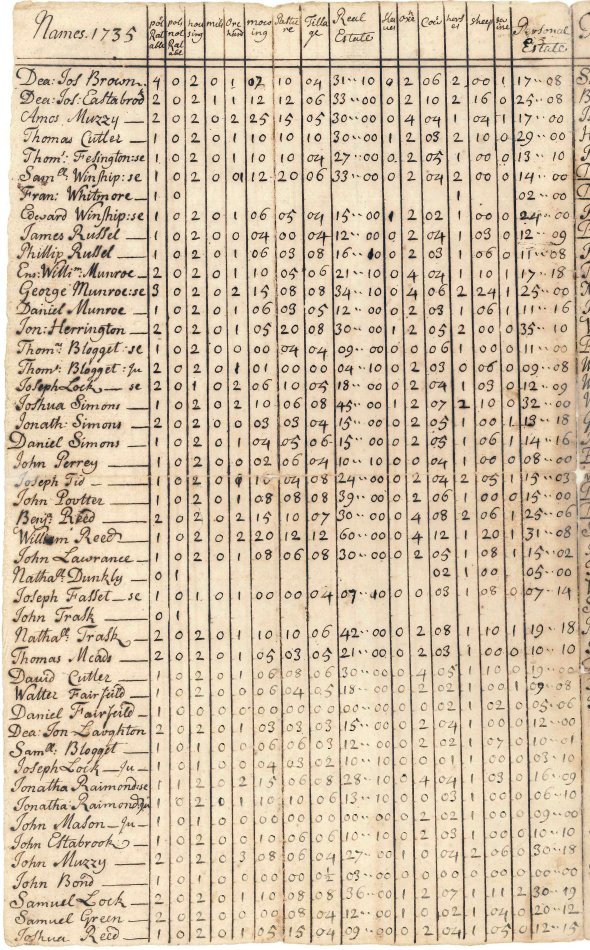 Names. 1735 pols Ratable pols not Ratable housing mils Orchard mowing Pasture Tillage Real Estate Oxen Cows horses sheep swine Personal Estate
Dea: Jos Brown 4 0 2 0 1 02 10 04 31··10 0 2 06 2 00 1 17··08
Dea: Jos: Eastabrook 2 0 2 1 1 12 12 06 33··00 0 2 10 2 16 0 25··08
Amos Muzzy 2 0 2 0 2 25 15 05 30··00 0 4 04 1 04 1 17··00
Thomas Cutler 1 0 2 0 1 10 10 10 30··00 1 2 03 2 10 0 29··00
Thoms. Fesington: se 1 0 2 0 1 10 10 04 27··00 0 2 05 1 00 0 13··10
Samll. Winship: se 2 0 2 0 01 12 20 06 33··00 0 2 04 2 00 0 14··00
Fran: Whitmore 1 0 1 02··00
Edward Winship: se 1 0 2 0 1 06 05 04 15··00 1 2 02 1 00 0 24··00
James Russel 1 0 2 0 0 04 00 04 12··00 0 2 04 1 03 0 12··09
Phillip Russel 1 0 2 0 1 06 03 08 16··10 0 2 03 1 06 0 11··08
Ens: Willm. Munroe 2 0 2 0 1 10 05 06 21··10 0 4 04 1 10 1 17··18
George Munroe: se 3 0 2 0 2 15 08 08 34··10 0 4 06 2 24 1 25··00
Daniel Munroe 1 0 2 0 1 06 03 05 12··00 0 2 03 1 06 1 11··16
Jon: Herrington 2 0 2 0 1 05 20 08 30··00 1 2 05 2 00 0 35··10
Thoms. Blogget: se 1 0 2 0 0 00 04 04 09··00 0 0 06 1 00 0 11··00
Thoms. Blogget: Ju 2 0 2 0 1 01 00 00 04··10 0 2 03 0 06 0 09··08
Joseph Lock se 2 0 1 0 2 06 10 05 18··00 0 2 04 1 03 0 12··09
Joshua Simons 1 0 2 0 2 10 06 08 45··00 1 2 07 2 10 0 32··00
Jonath: Simons 2 0 2 0 0 03 03 04 15··00 0 2 05 1 00 1 13··18
Daniel Simons 1 0 2 0 1 04 05 06 15··00 0 2 05 1 06 1 14··16
John Perrey 1 0 2 0 0 02 06 04 10··10 0 0 04 1 00 0 08··00
Joseph Tid 1 0 2 0 10 04 08 24··00 0 2 04 2 05 1 15··03
John Poulter 1 0 2 0 1 08 08 08 39··00 0 2 06 1 00 0 15··00
Benj: Reed 2 0 2 0 2 15 10 07 30··00 0 4 08 2 06 1 25··06
William Reed 1 0 2 0 2 20 12 12 60··00 0 4 12 1 20 1 31··08
John Lawrance 1 0 2 0 1 08 06 08 30··00 0 2 05 1 08 1 15··02
Nathall. Dunkly 0 1 02 1 00 05··00
Joseph Fasset se 1 0 1 0 1 00 00 04 07··10 0 0 03 1 08 0 07··14
John Trask 0 1
Nathall. Trask 2 0 2 0 1 10 10 06 42··00 0 2 08 1 10 1 19··18
Thomas Meads 2 0 2 0 1 05 03 05 21··00 0 2 03 1 00 0 10··10
David Cutler 1 0 2 0 1 06 08 06 30··00 0 4 05 1 10 0 19··00
Walter Fairfeild 1 0 2 0 0 06 04 05 18··00 0 2 02 1 00 1 09··08
Daniel Fairfeild 1 0 0 0 0 00 00 00 00··00 0 0 02 1 02 0 05··06
Dea: Jon Laughton 2 0 2 0 1 03 03 03 15··00 0 2 04 1 00 0 12··00
Samll: Blogget 1 0 2 0 0 06 06 03 12··00 0 2 02 1 07 0 10··01
Joseph Lock Ju 1 0 1 0 0 04 03 02 10··00 0 0 01 1 00 0 03··10
Jonatha Raimond: se 1 1 2 0 2 15 06 08 28··10 0 4 04 1 03 0 16··09
Jonatha: Raimond: Ju 1 0 2 1 0 10 10 06 13··10 0 0 03 1 00 0 06··10
John Mason Ju 1 0 1 0 0 00 00 00 00··00 0 2 02 1 00 0 09··00
John Estabrook 1 0 2 0 0 10 06 06 10··10 0 2 03 1 00 0 10··10
John Muzzy 2 0 2 0 3 08 06 04 27··00 1 0 04 2 06 0 30··18
John Bond 1 0 1 0 0 00 00 0½ 03··00 0 0 00 0 00 0 00··00
Samuel Lock 2 0 2 0 1 10 08 08 36··00 1 2 07 1 11 2 30··19
Samuel Green 2 0 2 0 0 00 08 04 12··00 1 0 02 1 04 0 20··12
Joshua Reed 1 0 2 0 1 05 15 04 09··00 0 2 04 1 05 0 12··15